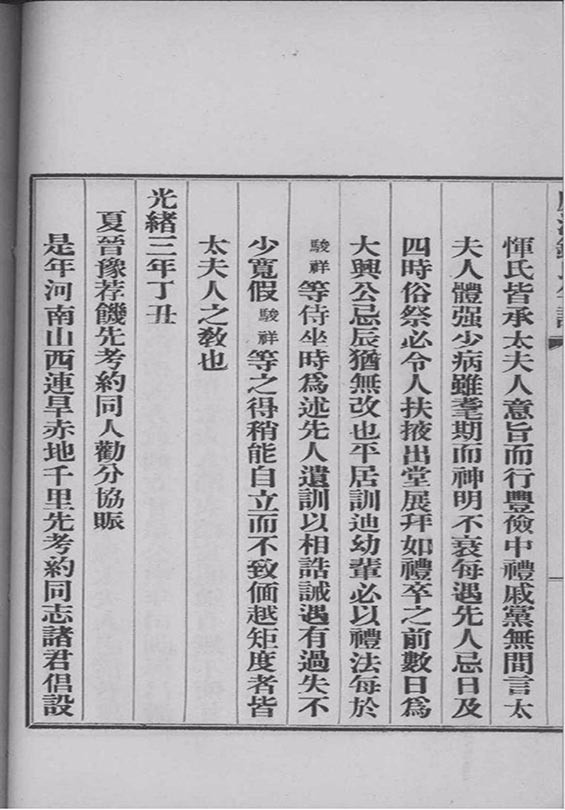 惲氏皆承太夫人意旨而行豐儉中禮戚黨無間言太
夫人體强少病雖耄期而神明不衰每遇先人忌日及
四時俗祭必令人扶掖出堂展拜如禮卒之前數日爲
大興公忌辰猶無改也平居訓迪幼輩必以禮法每於
駿祥等侍坐時爲述先人遺訓以相誥誡遇有過失不
少寬假駿祥等之得稍能自立而不致偭越矩度者皆
太夫人之敎也
光緒三年丁丑
夏晉豫荐饑先考約同人勸分協賑
是年河南山西連旱赤地千里先考約同志諸君倡設